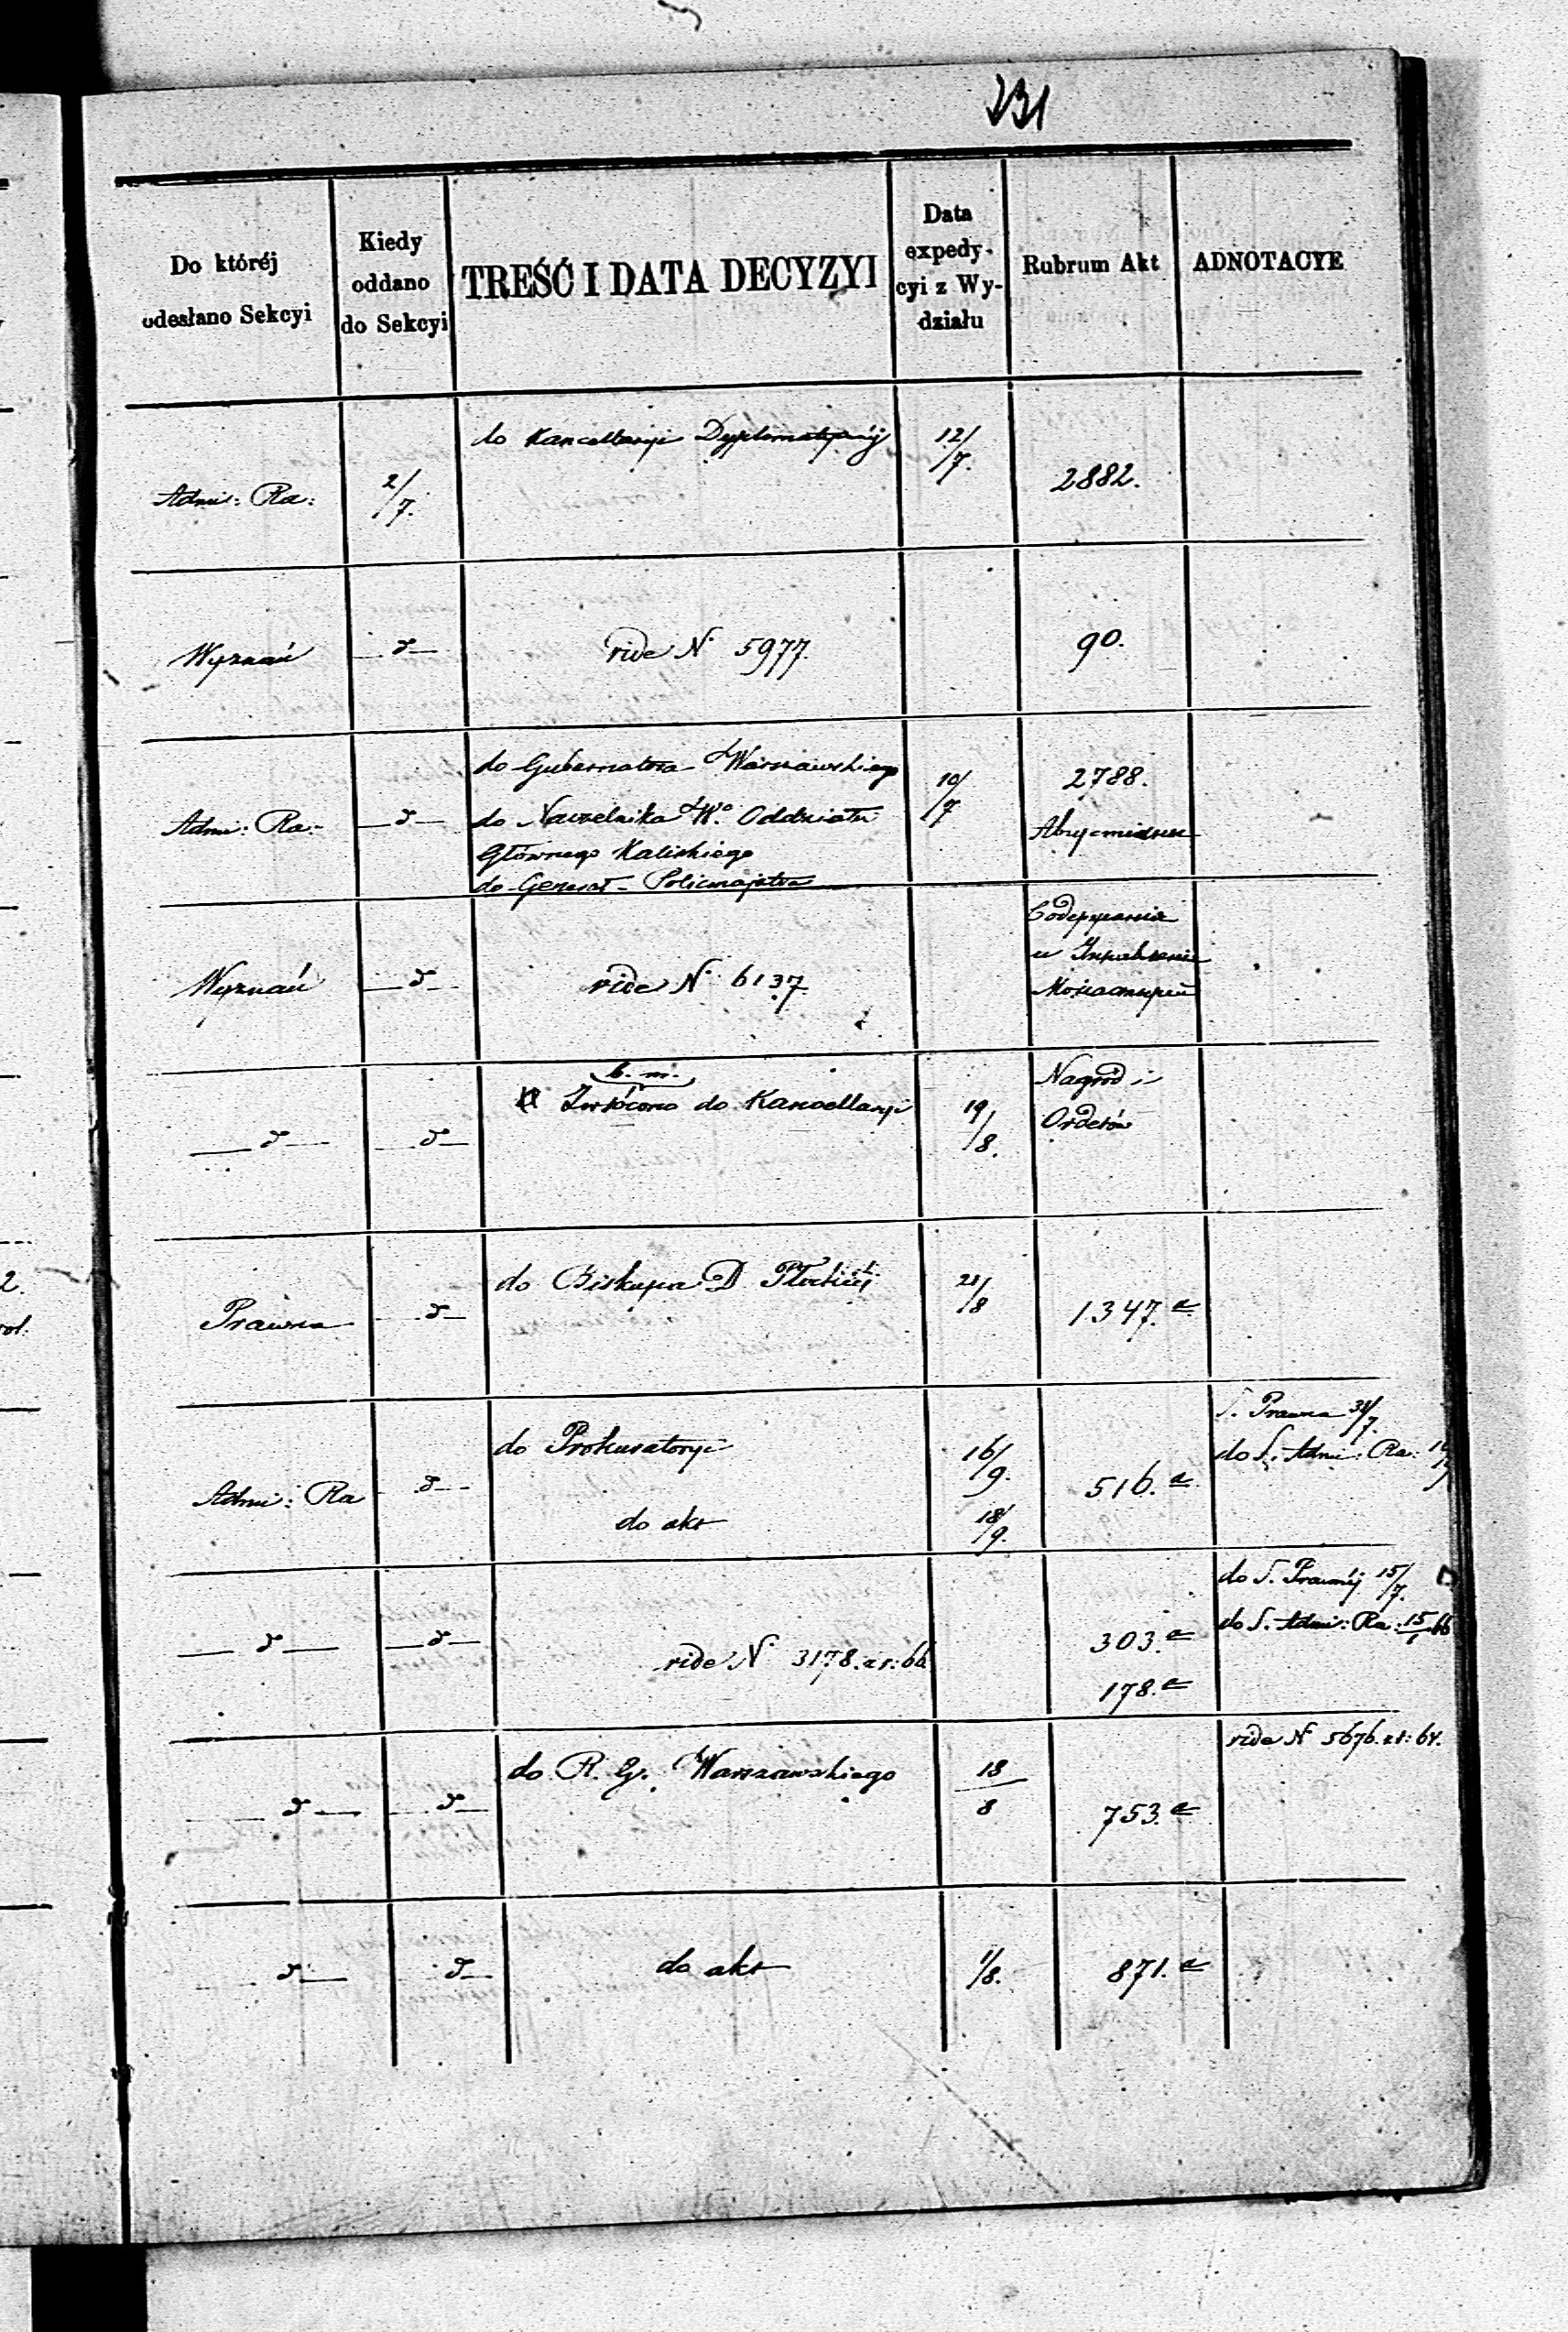 231
Do któréj
odesłano Sekcyi
Kiedy
oddano
do Sekcyi
TREŚĆ I DATA DECYZYI
Data
expedy-
cyi z Wy-
działu
Rubrum Akt
ADNOTACYE
Admi: Ra:
2/7.
do Kancellaryi Dyplomatycznéj
12/7.
2882.
Wyznań
— d —
vide N. 5977.
90.
Admi: Ra:
— d —
do Gubernatora Warszawskiego
do Naczelnika W.º Oddziału
Głównego Kaliskiego
do Generał-Policmajstra
10/7
2788.
Wyznań
— d —
vide N. 6137.
— d —
— d —
b. m.
Zwrócono do Kancellaryi
19/8.
Nagród i
Orderów
Prawna
— d —
do Biskupa D. Płockiéj
21/8
1347. a
Admi: Ra
— d —
do Prokuratoryi
do akt
16/9.
18/9.
516. a
S. Prawna 31/7.
do S. Admi: Ra:
— d —
— d —
vide N. 3178. z r: 66
303. a
178. a
do S. Prawnéj 15/7.
do S. Admi: Ra:
— d —
— d —
do R. G. Warszawskiego
18/8
753. a
vide N 5676. z r: 64.
— d —
— d —
do akt
1/8.
871. a